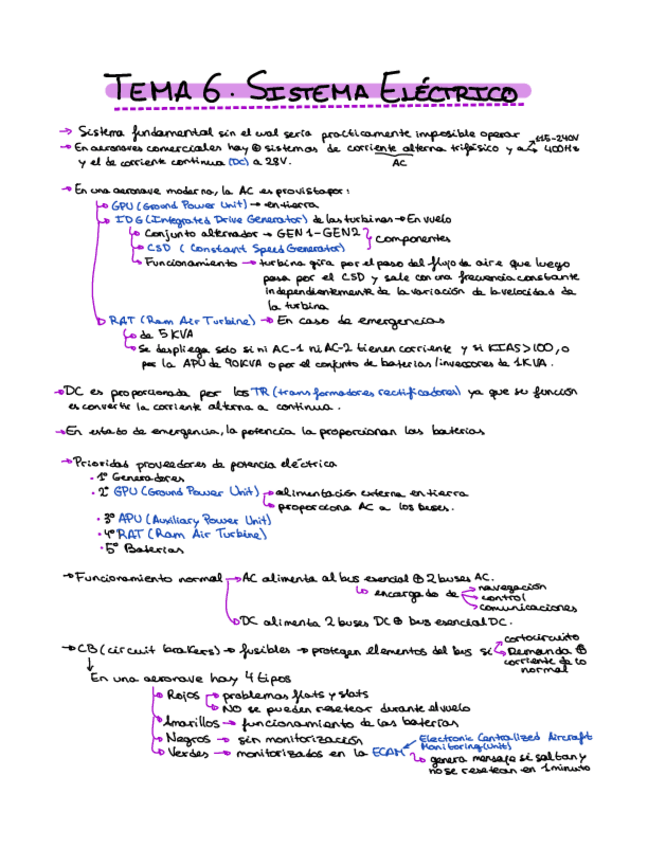 TEMA 6. SISTEMA ELÉCTRICO
→ Sistema fundamental sin el cual sería practicamente imposible operar
→ En aeronaves comerciales hay ⊕ sistemas de corriente alterna trifásico y a → 115-240V
400Hz
y el de corriente continua (DC) a 28V.
AC
→ En una aeronave moderna, la AC es provista por:
GPU (Ground Power Unit) → en tierra
IDG (Integrated Drive Generator) de las turbinas → En vuelo
Conjunto alternador → GEN 1 - GEN 2
CSD (Constant Speed Generator)
componentes
Funcionamiento → turbina gira por el paso del flujo de aire que luego
pasa por el CSD y sale con una frecuencia constante
independientemente de la variación de la velocidad de
la turbina
RAT (Ram Air Turbine) → En caso de emergencias
de 5 KVA
Se despliega solo si ni AC-1 ni AC-2 tienen corriente y si KIAS>100, o
por la APU de 90KVA o por el conjunto de baterías/inversores de 1KVA.
→ DC es proporcionada por los TR (transformadores rectificadores) ya que su función
es convertir la corriente alterna a continua.
→ En estado de emergencia, la potencia la proporcionan las baterías
→ Prioridas proveedores de potencia eléctrica
· 1º Generadores
· 2º GPU (Ground Power Unit) → alimentación externa en tierra
proporciona AC a los buses.
· 3º APU (Auxiliary Power Unit)
· 4º RAT (Ram Air Turbine)
· 5º Baterías
→ Funcionamiento normal → AC alimenta al bus esencial ⊕ 2 buses AC.
encargado de
navegación
control
comunicaciones
DC alimenta 2 buses DC ⊕ bus esencial DC.
→ CB (circuit brakers) → fusibles → protegen elementos del bus si
cortocircuito
Demanda ⊕
corriente de lo
normal
En una aeronave hay 4 tipos
Rojos → problemas flats y slats
NO se pueden resetear durante el vuelo
Amarillos → funcionamiento de las baterías
Negros → sin monitorización
Verdes → monitorizados en la ECAM
Electronic Centralized Aircraft
Monitoring (Unit)
genera mensaje si saltan y
no se resetean en 1 minuto